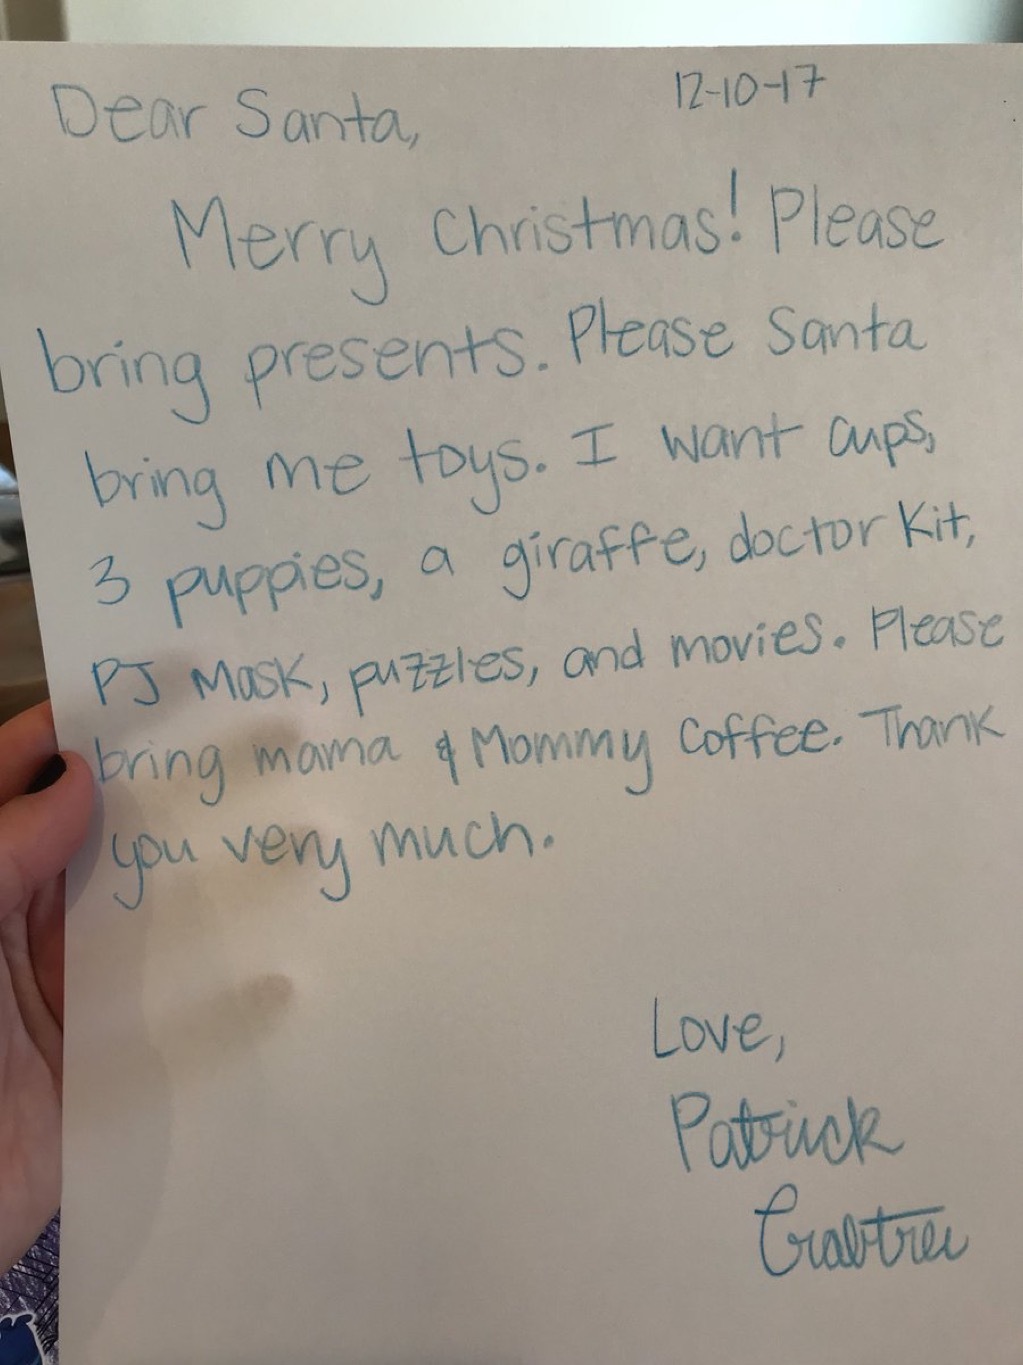 12-10-17
Dear Santa,
Merry Christmas! Please
bring presents. Please Santa
bring me toys. I want cups,
3 puppies, a giraffe, doctor Kit,
PJ Mask, puzzles, and movies. Please
bring mama & Mommy Coffee. Thank
you very much.
Love,
Patrick
Crabtree